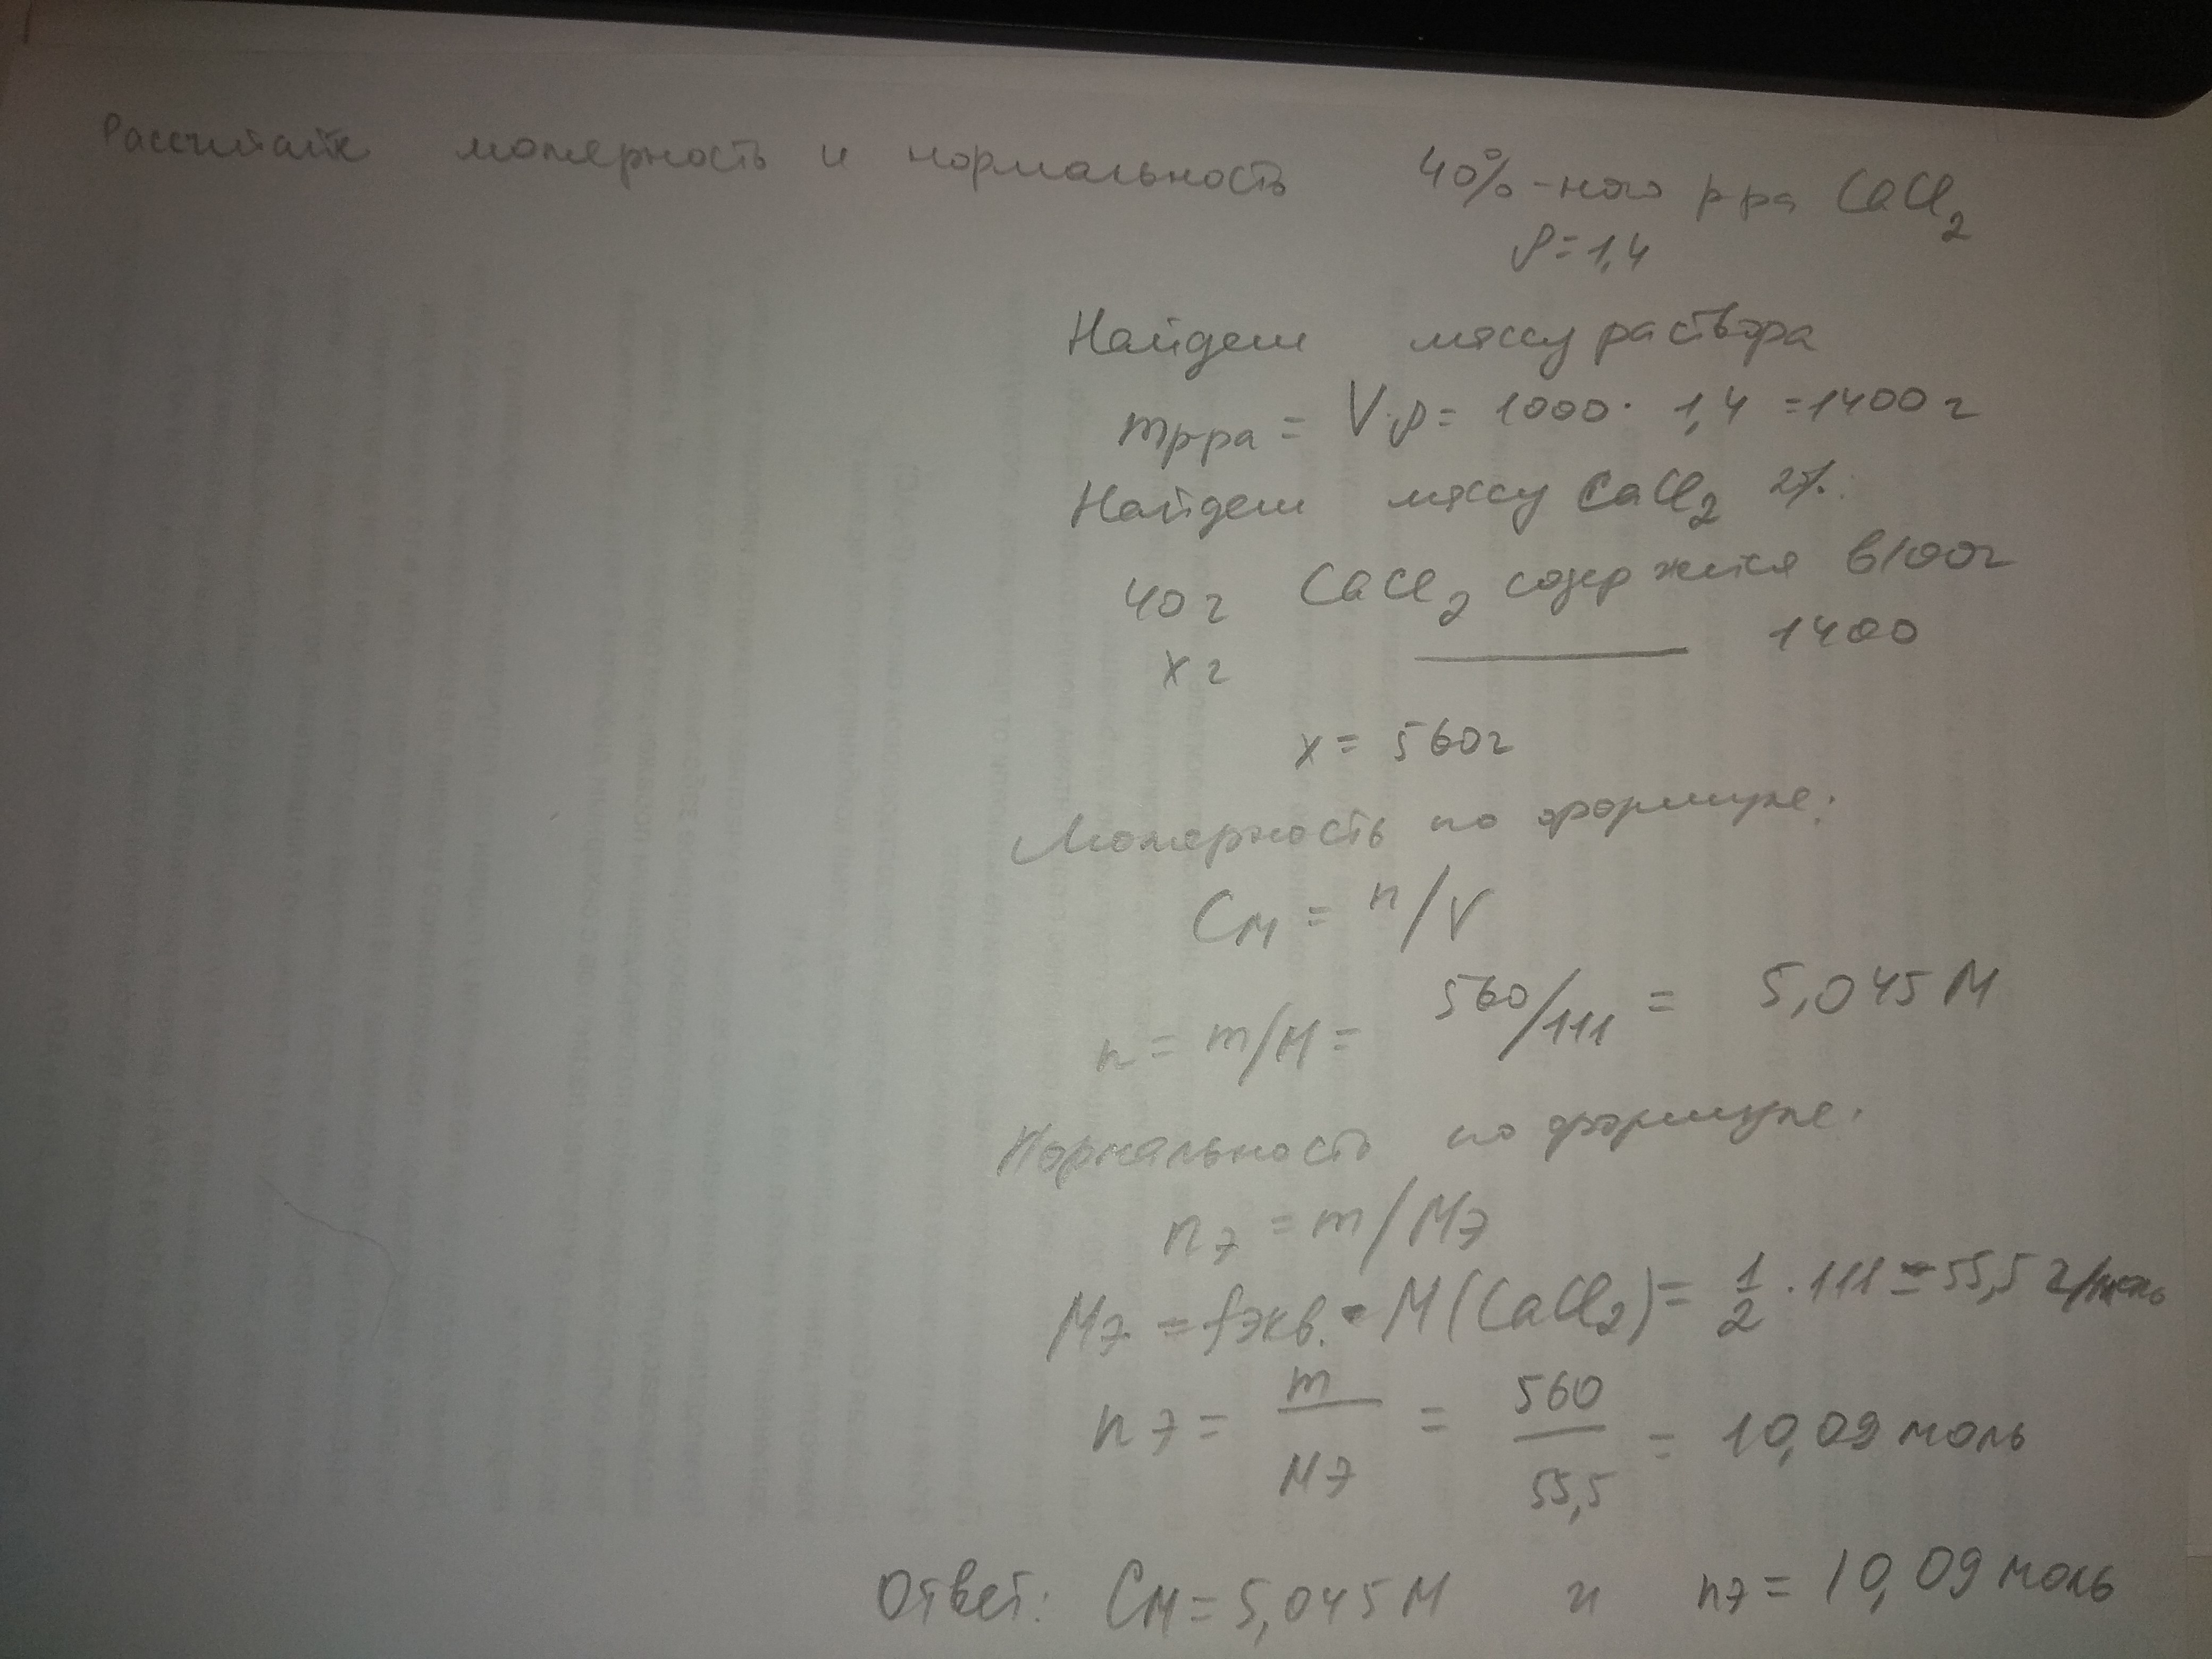 Рассчитайте молярность и нормальность 40%-ного р-ра CaCl2
ρ=1,4
Найдем массу раствора
mр-ра = V·ρ= 1000· 1,4 =1400 г
Найдем массу CaCl2
40 г CaCl2 содержится в 100г
x г —— 1400
x = 560г
Молярность по формуле:
CM = n/V
n = m/M = 560/111 = 5,045 M
Нормальность по формуле:
nэ = m/Mэ
Mэ = fэкв. • M(CaCl2) = 1/2 · 111 = 55,5 г/моль
nэ = m/Mэ = 560/55,5 = 10,09 моль
Ответ: CM = 5,045 M и nэ = 10,09 моль